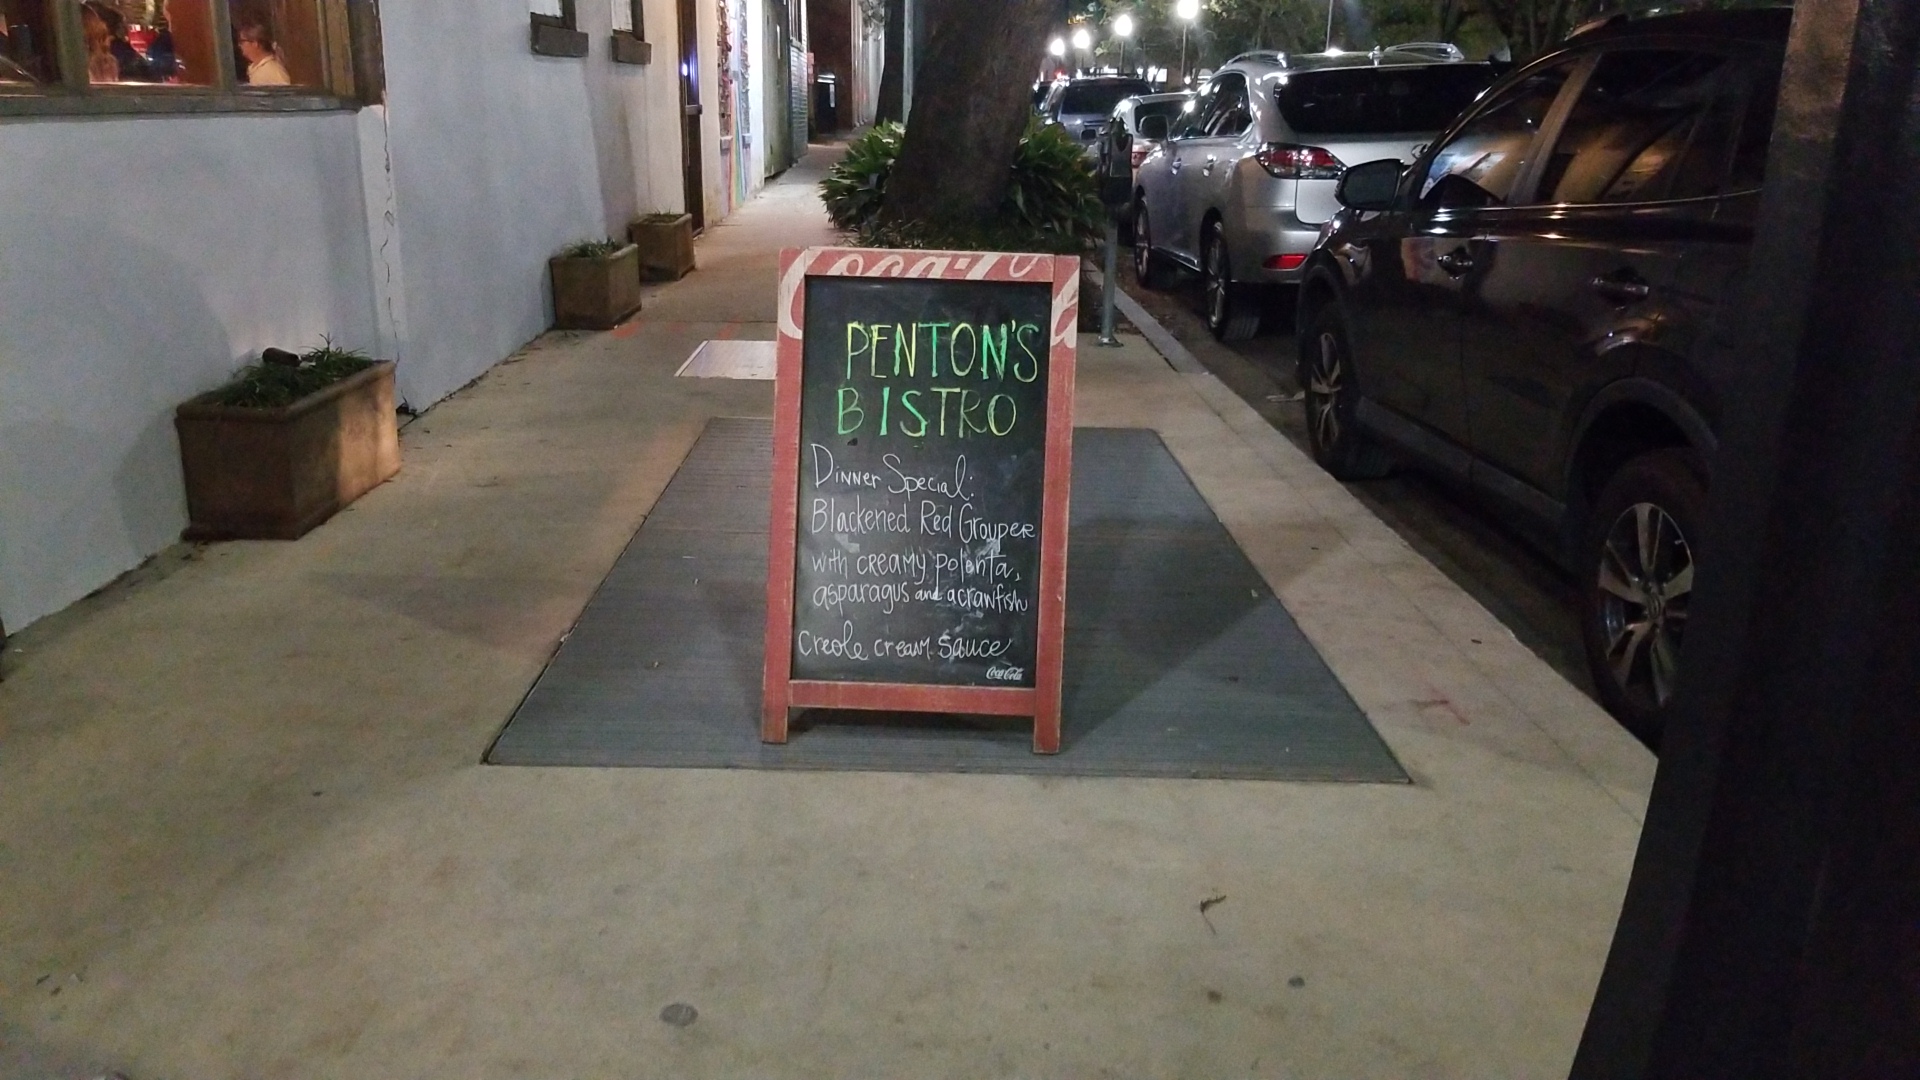 Coca-Cola
PENTON'S
BISTRO
Dinner Special:
Blackened Red Grouper
with creamy polenta,
asparagus and a crawfish
creole cream sauce
Coca-Cola